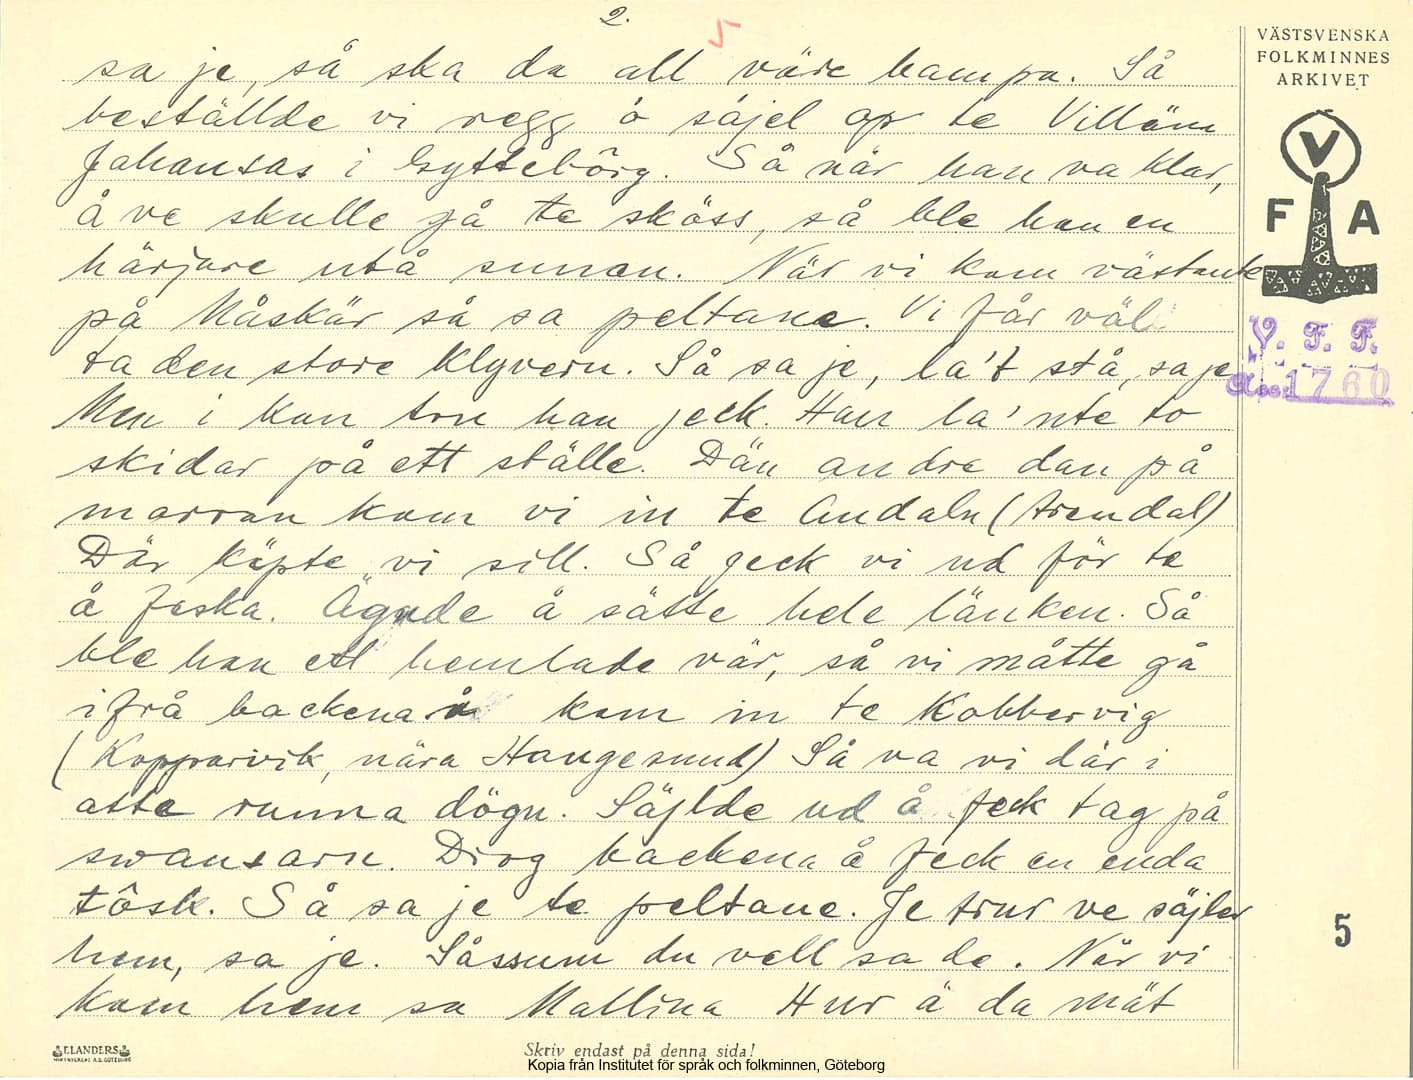 2.
5
sa je, så ska da all väre hampa. Så
beställde vi regg å säjel op te Villäm
Jahansas i Gyttebôrg. Så när han va klar,
å ve skulle gå te sköss, så ble han en
härjare utå sunnan. När vi kom västante
på Måskär så sa peltane. Vi får väl
ta den store klyvern. Så sa je, la't stå, sa je
Men i kan tru han jeck. Han la'nte to
skidar på ett ställe. Dän andre dan på
marran kom vi in te Andaln (Arendal)
Där käpte vi sill. Så geck vi ud för te
å feska. Ägnde å sätte hele länken. Så
ble han ett hemlade vär, så vi måtte gå
ifrå backena å kom in te Kobbervig
(Kopparvik, nära Haugesund) Så va vi där i
atte runna dögn. Säjlde ud å feck tag på
swansarn. Drog backena å feck en enda
tôsk. Så sa je te peltane. Je trur ve säjler
hem, sa je. Såssum du vell sa de. När vi
kom hem sa Mallina Hur ä da mät
VÄSTSVENSKA
FOLKMINNES
ARKIVET
V
F A
V. F. F.
Acc. 1760
5
ELANDERS
Skriv endast på denna sida!
Kopia från Institutet för språk och folkminnen, Göteborg